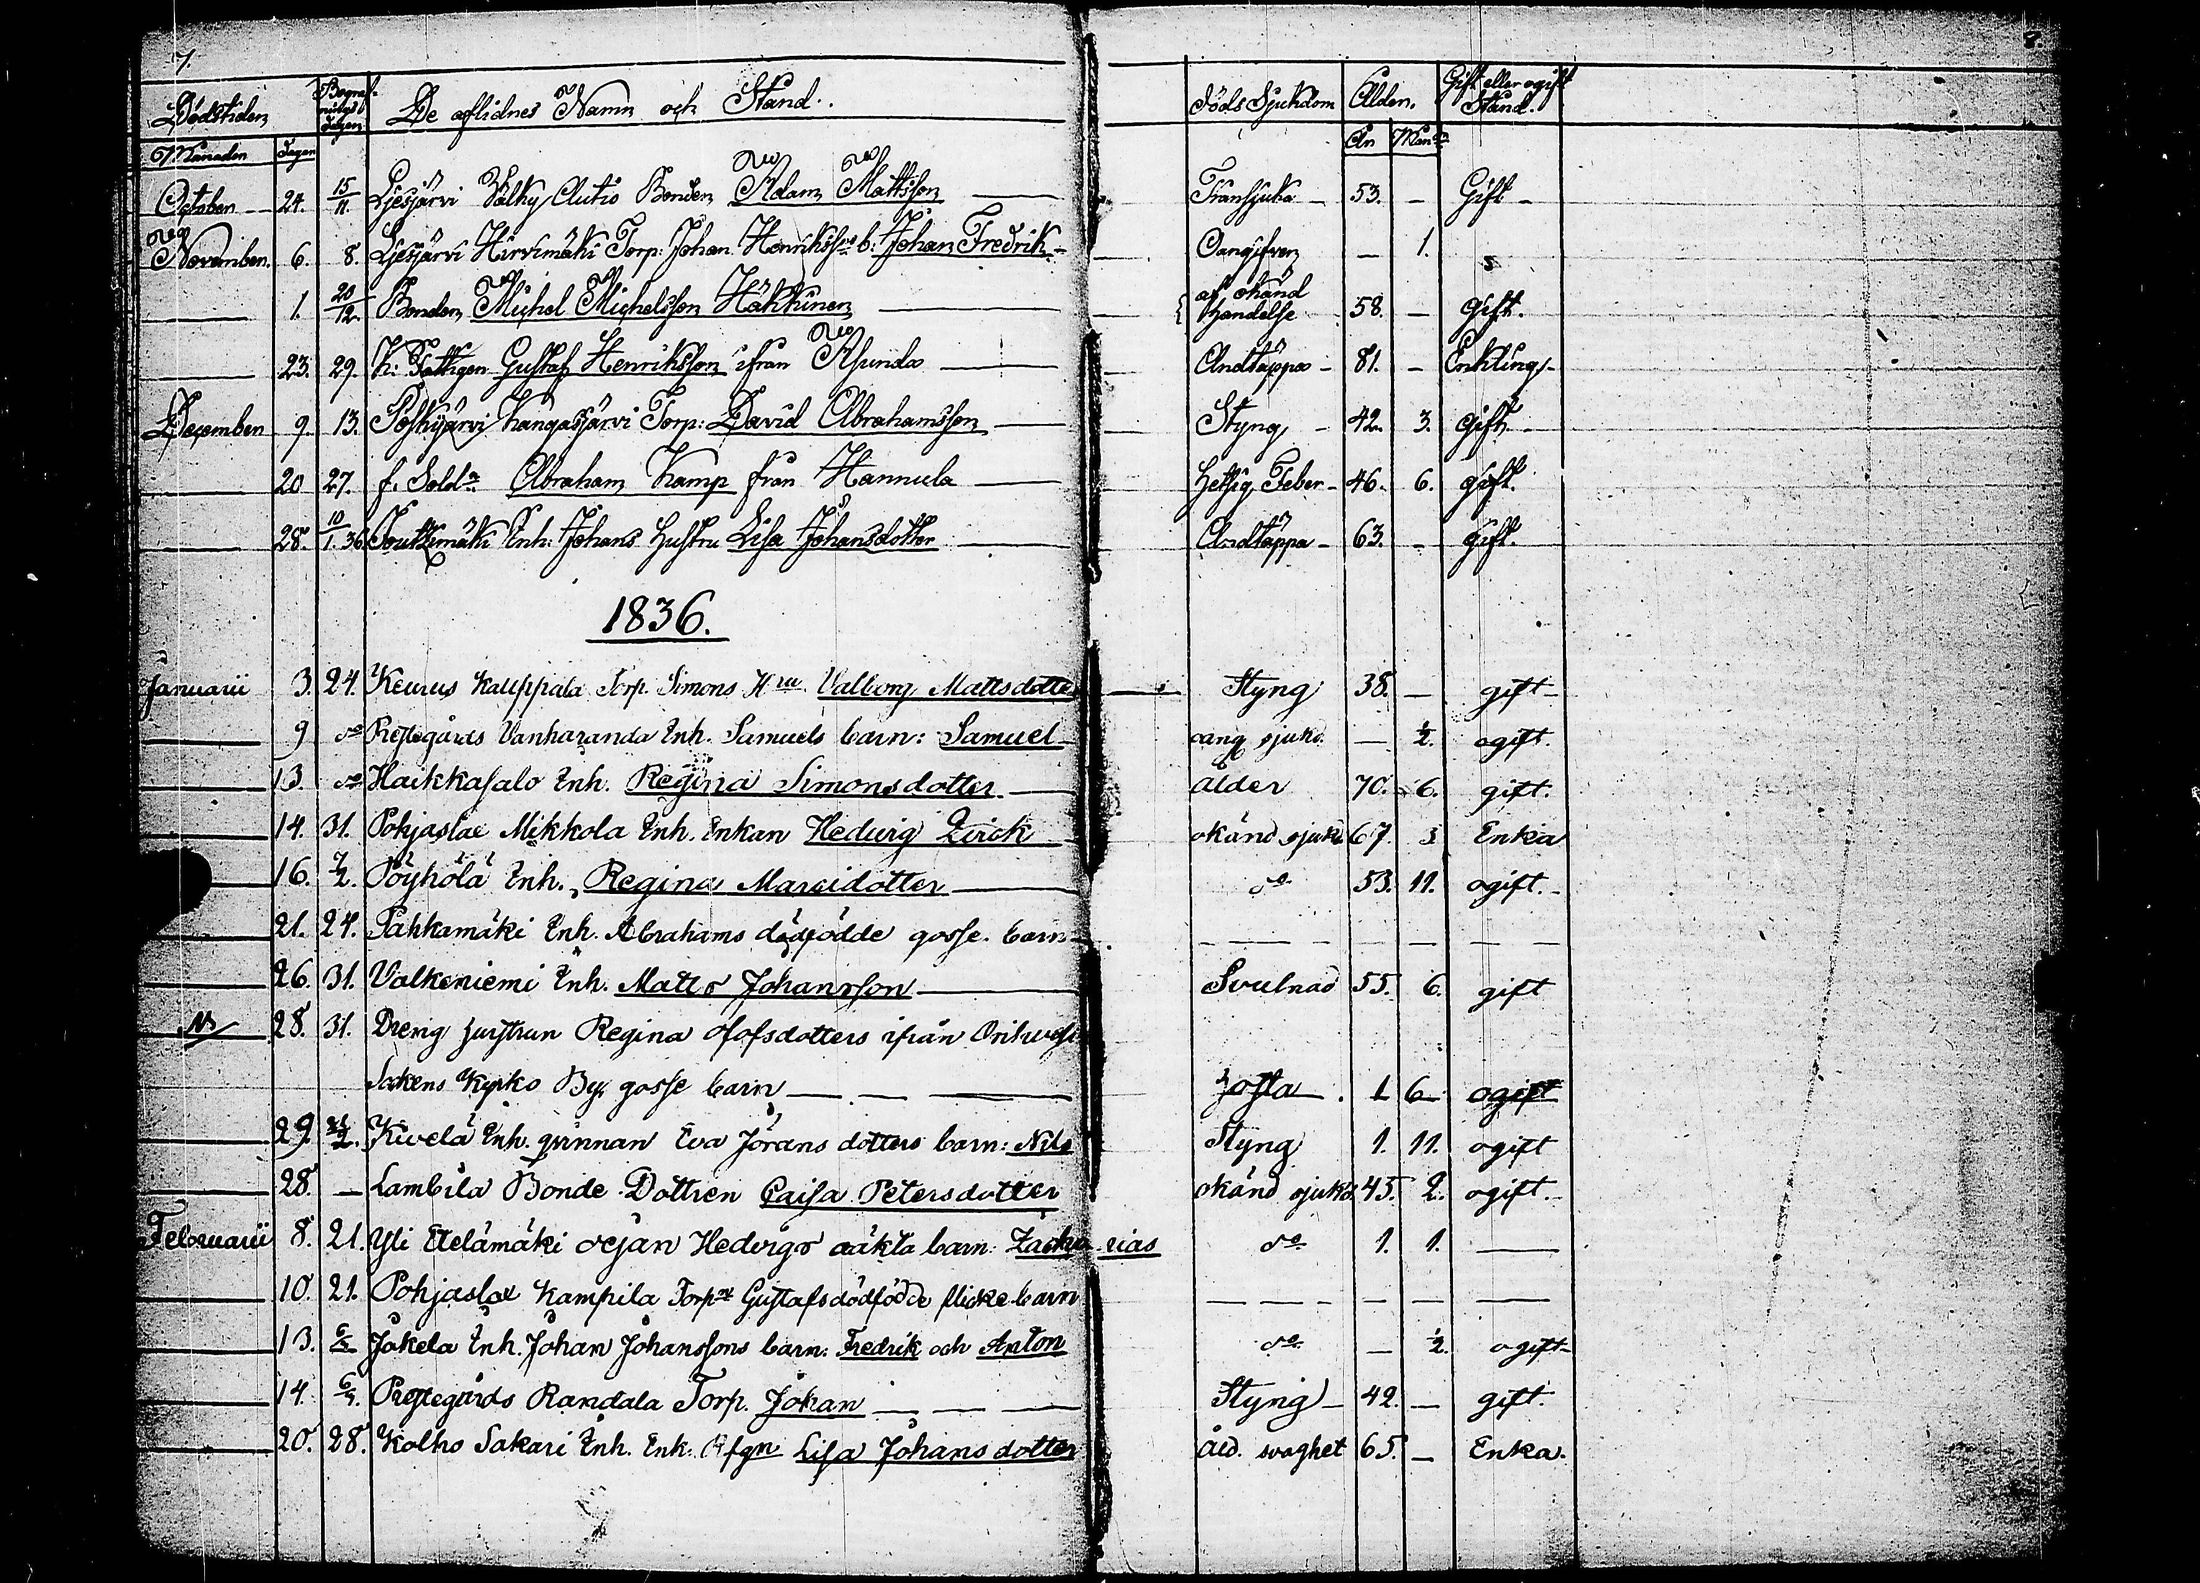 7.
8.
Dödstiden Begrafnings Dagen De aflidnes Namn och Stånd. Döds Sjukdom Ålder. Gift eller ogift Stånd.
Månaden Dagen År Mån:
October 24. 15/11. Liesjärvi Välky Autio Bonden Adam Mattsson Transjuka 53. — Gift
November. 6. 8. Liesjärvi Hirvimäki Torp. Johan Henrikss: b: Johan Fredrik Oangifven — 1.
1. 20/12. Bonden Michel Michelsson Häkkinen af okänd händelse 58. — gift.
23. 29. K: Fattigen Gustaf Henriksson ifrån Asunda Andtäppa 81. — Enkling
December 9. 13. Poskijärvi Kangasjärvi Torp: David Abrahamsson Styng 42. 3. gift
20 27. f. Sold: Abraham Kamp från Hannula Hetsig Feber 46. 6. gift.
28. 10/1. 36 Inh: Johans hustru Lisa Johansdotter Andtäppa 63. — gift.
1836.
Januarii 3. 24. Keurus Kauppala Torp. Simons H:ru Valborg Mattsdotte Styng 38. — gift
9 do Prestegårds Vanharanda Inh. Samuels barn: Samuel oang. sjukd. — 1/2. ogift.
13. do Haikkasalo Inh. Regina Simonsdotter ålder 70. 6. gift.
14. 31. Pohjaslax Mikkola Inh. Enkan Hedvig Zirck okänd sjukd 67. 3 Enka
16. 7/2. Pöyhölä Inh. Regina Marcidotter do 53. 11. ogift.
21. 24. Pahkamäki Inh. Abrahams dödfödde gosse barn — — — — —
26. 31. Valkeniemi Inh. Matts Johansson Svulnad 55. 6. gift
28. 31. Dreng hustrun Regina Olofsdotters ifrån
Sockens Kyrko By gosse barn hosta 1 6 ogift
29. Kivelä Inh. qvinnan Eva Jörans dotters barn: Nils Styng 1. 11. ogift
28. — Lambila Bonde Dottren Caisa Petersdotter okänd sjukd. 45. 2. ogift.
Februarii 8. 21. Yli Etelämäki Hedvigs oäkta barn: Zacharias do 1. 1. —
10. 21. Pohjaslax Kampila Torp:re Gustafs dödfödde flicke barn — — — — —
13. 6/3 Jäkelä Inh. Johan Johanssons barn: Fredrik och Anton do — 1/2. ogift
14. Prestegårds Randala Torp. Johan Styng 42. — gift.
20. 28. Kolho Sakari Inh. Enk: Lisa Johans dotter åld. svaghet 65. — Enka.